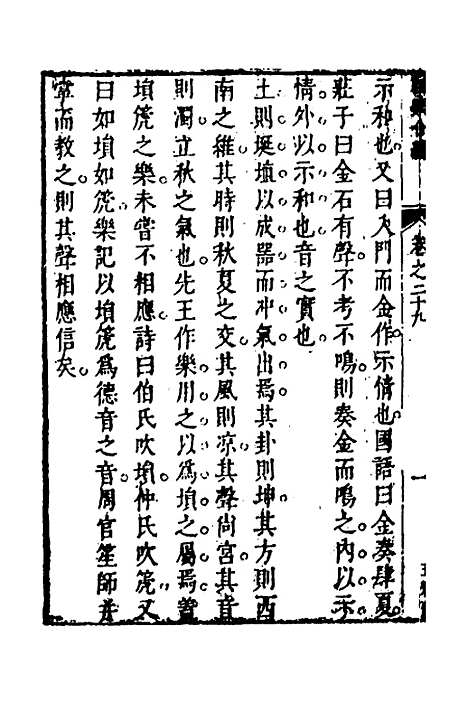 示和也又曰入門而金作示情也國語曰金奏肆夏
莊子曰金石有聲不考不鳴則奏金而鳴之內以示
情外以示和也音之實也
土則埏埴以成器而冲氣出焉其卦則坤其方則西
南之維其時則秋夏之交其風則凉其聲尚宮其音
則濁立秋之氣也先王作樂用之以爲塤之屬焉葢
塤箎之樂未嘗不相應詩曰伯氏吹塤仲氏吹箎又
曰如塤如箎樂記以塤箎爲德音之音周官笙師並
掌而教之則其聲相應信矣
卷之二十九
一